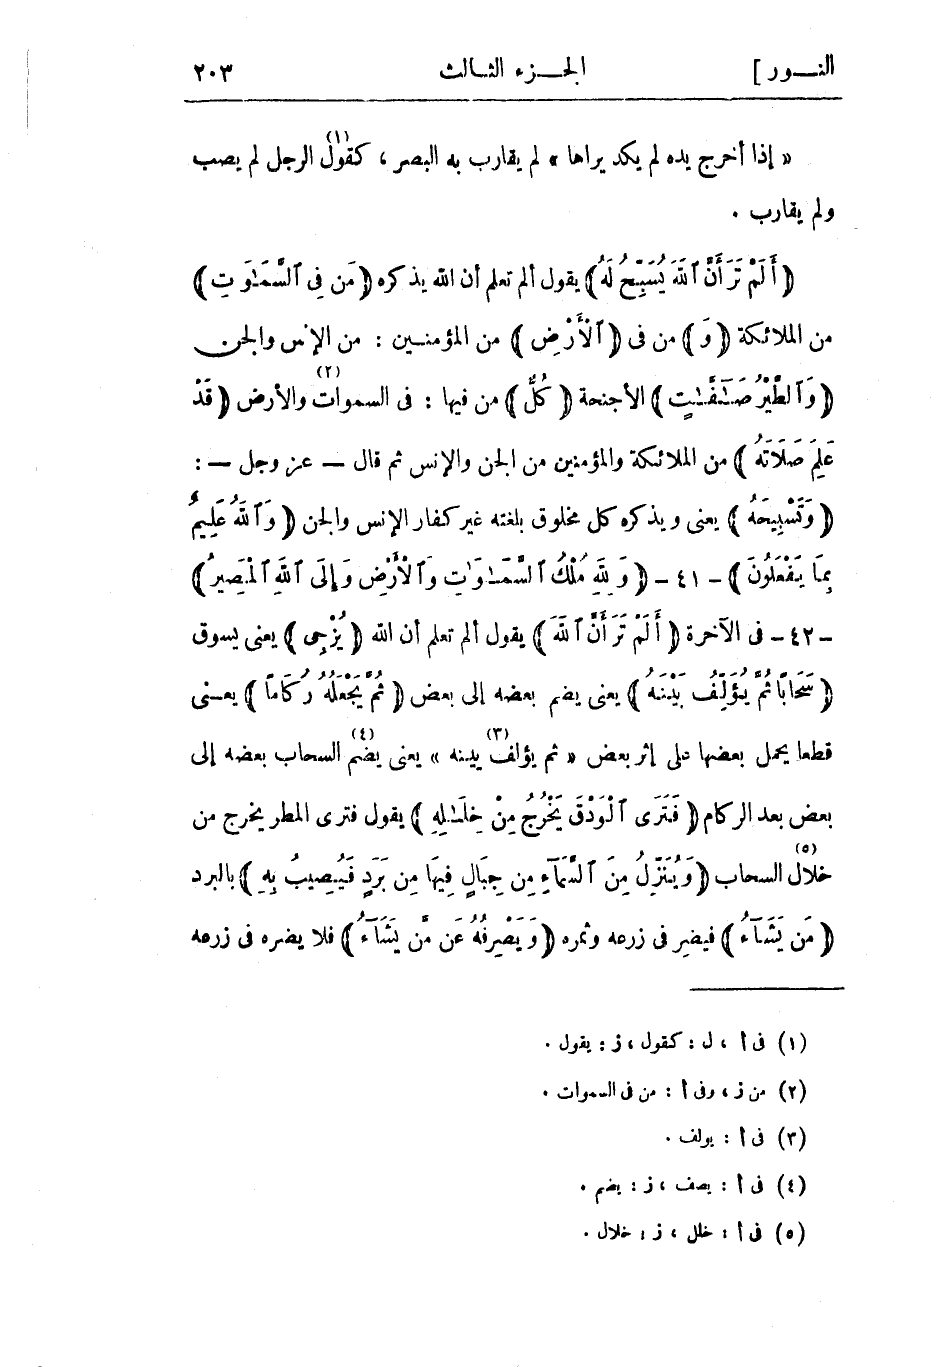 النـــور ] الجـــزء الثـالث ٢٠٣
« إذا أخرج يده لم يكد يراها » لم يقارب به البصر ، كقول (١) الرجل لم يصب
ولم يقارب .
﴿ أَلَمْ تَرَ أَنَّ ٱللَّهَ يُسَبِّحُ لَهُ ﴾ يقول ألم تعلم أن الله يذكره ﴿ مَن فِى ٱلسَّمَـٰوَٰتِ ﴾
من الملائكة ﴿ وَ ﴾ من فى ﴿ ٱلْأَرْضِ ﴾ من المؤمنـين : من الإنس والجن
﴿ وَٱلطَّيْرُ صَـٰٓفَّـٰتٍ ﴾ الأجنحة ﴿ كُلٌّ ﴾ من فيها : فى السموات (٢) والأرض ﴿ قَدْ
عَلِمَ صَلَاتَهُ ﴾ من الملائكة والمؤمنين من الجن والإنس ثم قال — عز وجل — :
﴿ وَتَسْبِيحَهُ ﴾ يعنى ويذكره كل مخلوق بلغته غير كفار الإنس والجن ﴿ وَٱللَّهُ عَلِيمٌ
بِمَا يَفْعَلُونَ ﴾ - ٤١ - ﴿ وَلِلَّهِ مُلْكُ ٱلسَّمَـٰوَٰتِ وَٱلْأَرْضِ وَإِلَى ٱللَّهِ ٱلْمَصِيرُ ﴾
- ٤٢ - فى الآخرة ﴿ أَلَمْ تَرَ أَنَّ ٱللَّهَ ﴾ يقول ألم تعلم أن الله ﴿ يُزْجِى ﴾ يعنى يسوق
﴿ سَحَابًا ثُمَّ يُؤَلِّفُ بَيْنَهُ ﴾ يعنى يضم بعضه إلى بعض ﴿ ثُمَّ يَجْعَلُهُ رُكَامًا ﴾ يعـنى
قطعا يحمل بعضها على إثر بعض « ثم يؤلف (٣) بينه » يعنى يضم (٤) السحاب بعضه إلى
بعض بعد الركام ﴿ فَتَرَى ٱلْوَدْقَ يَخْرُجُ مِنْ خِلَـٰلِهِ ﴾ يقول فترى المطر يخرج من
خلال (٥) السحاب ﴿ وَيُنَزِّلُ مِنَ ٱلسَّمَآءِ مِن جِبَالٍ فِيهَا مِن بَرَدٍ فَيُصِيبُ بِهِ ﴾ بالبرد
﴿ مَن يَشَآءُ ﴾ فيضر فى زرعه وثمره ﴿ وَيَصْرِفُهُ عَن مَّن يَشَآءُ ﴾ فلا يضره فى زرعه
(١) فى أ ، ل : كقول ، ز : يقول .
(٢) من ز ، وفى أ : من فى السموات .
(٣) فى أ : يولف .
(٤) فى أ : يصف ، ز : يضم .
(٥) فى أ : خلل ، ز : خلال .